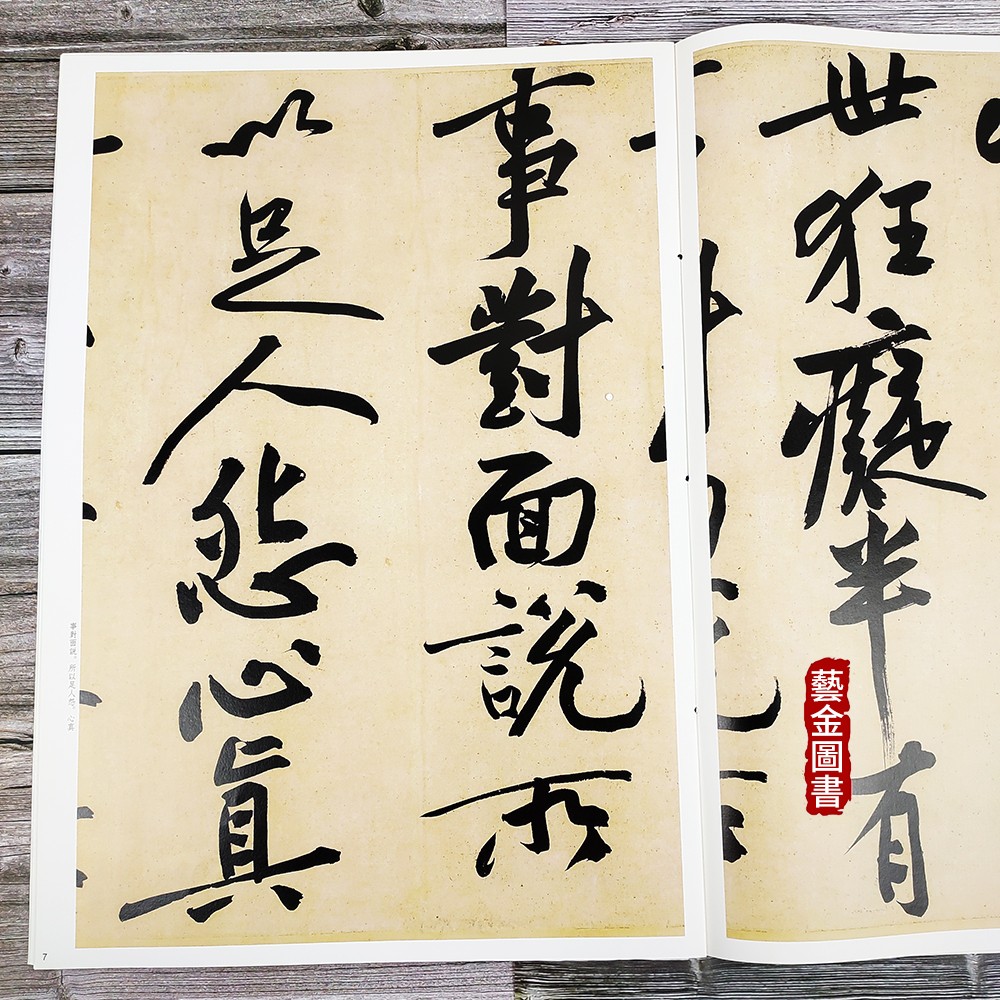 世狂癡半有
事對面說所
以足人怨心真
事對面說。所以足人怨。心真
7
藝金圖書